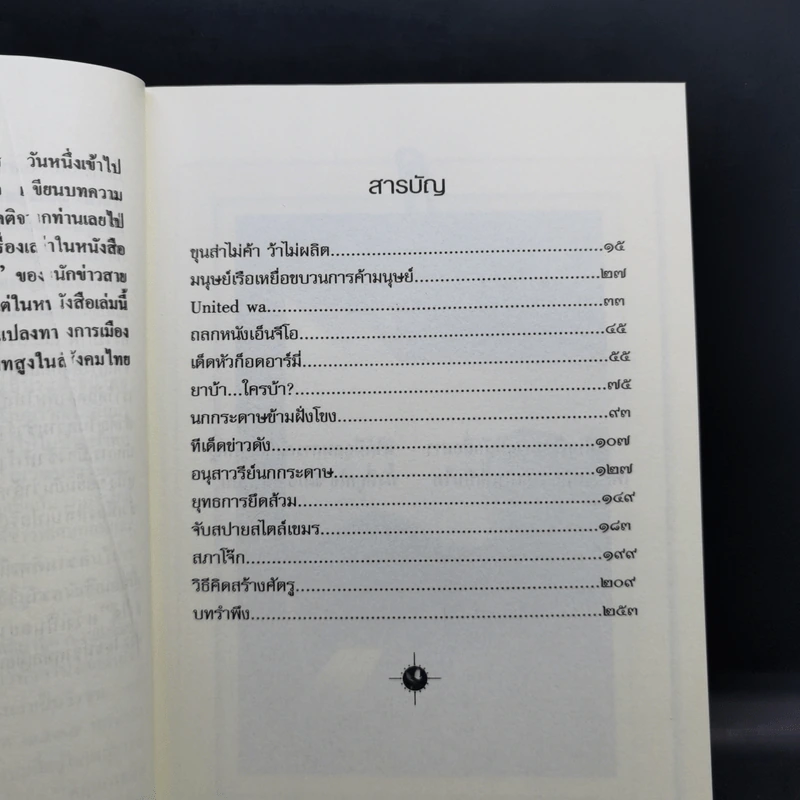 วันหนึ่งเข้าไป
ขียนบทความ
กท่านเลยไป
ในหนังสือ
ของ นักข่าวสาย
ังสือเล่มนี้
แปลงทา งการเมือง
ทสูงในสังคมไทย
สารบัญ
ขุนส่าไม่ค้า ว้าไม่ผลิต...............๑๕
มนุษย์เรือเหยื่อขบวนการค้ามนุษย์...............๒๗
United wa...............๓๓
ถลกหนังเอ็นจีโอ...............๔๕
เด็ดหัวก็อดอาร์มี่...............๕๕
ยาบ้า...ใครบ้า?...............๗๕
นกกระดาษข้ามฝั่งโขง...............๙๓
ทีเด็ดข่าวดัง...............๑๐๗
อนุสาวรีย์นกกระดาษ...............๑๒๗
ยุทธการยึดส้วม...............๑๔๙
จับสปายสไตล์เขมร...............๑๘๓
สภาโจ๊ก...............๑๙๙
วิธีคิดสร้างศัตรู...............๒๐๙
บทรำพึง...............๒๕๓